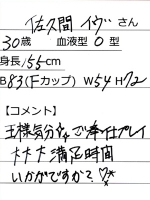 佐久間 イヴ さん
30歳 血液型 O 型
身長 155cm
B83(Fカップ) W54 H72
【コメント】
王様気分でご奉仕プレイ
大大大満足時間
いかがですか?♡